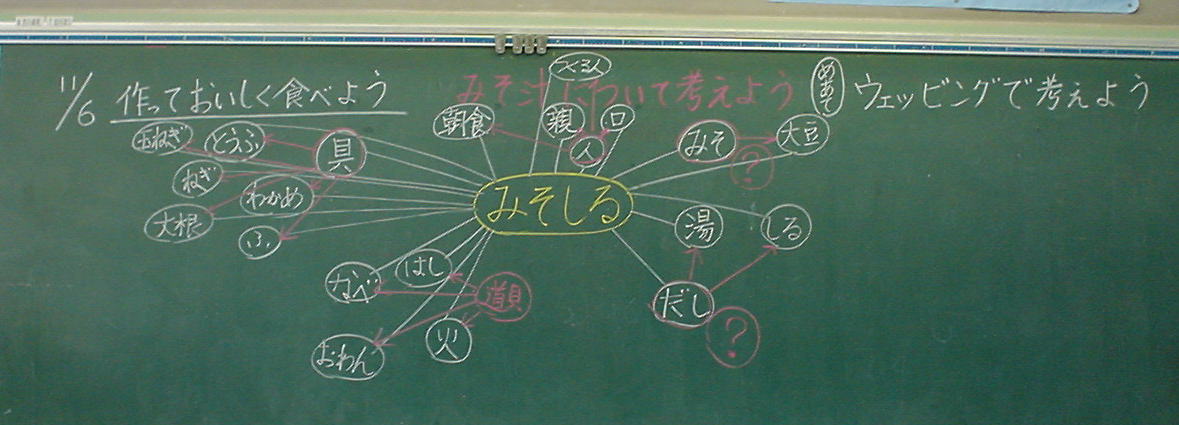 11/6 作っておいしく食べよう
みそ汁について考えよう
めあて ウェッビングで考えよう
つくる人
朝食
親
口
人
みそ
大豆
?
玉ねぎ
とうふ
具
ねぎ
わかめ
大根
ふ
みそしる
湯
しる
だし
?
なべ
はし
道具
火
おわん